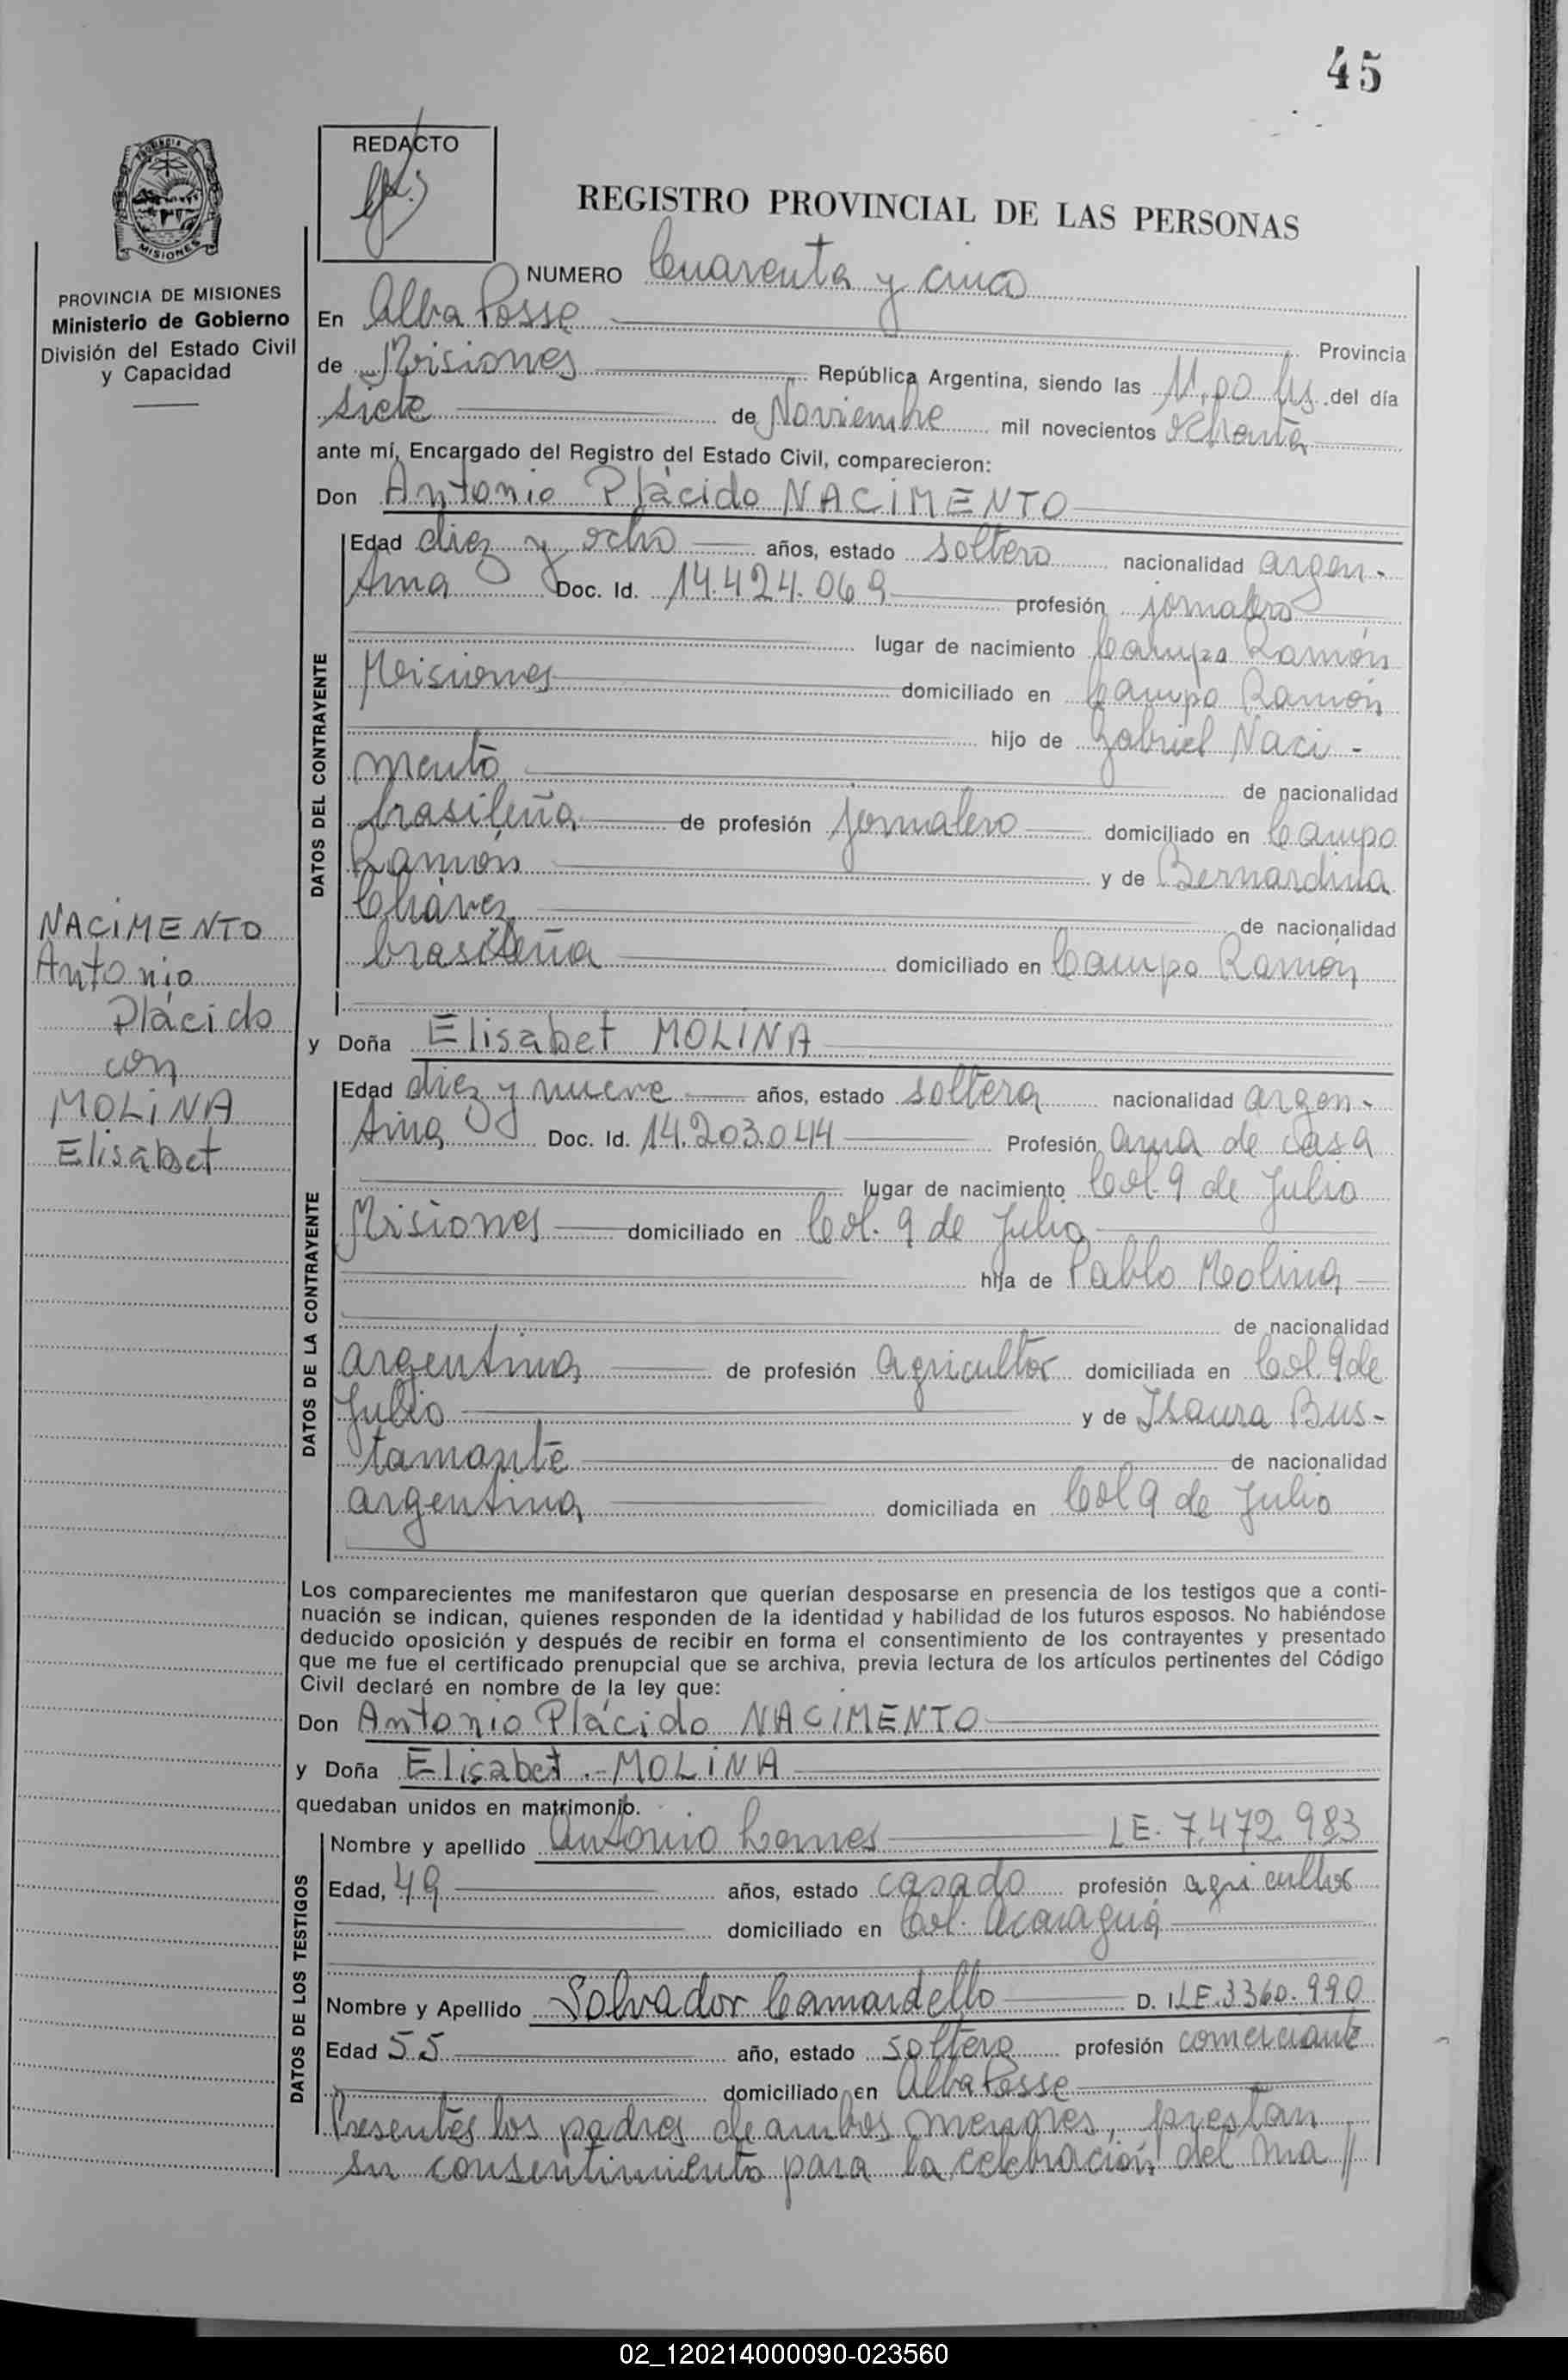 45
REDACTO
PROVINCIA DE MISIONES
Ministerio de Gobierno
División del Estado Civil
y Capacidad
REGISTRO PROVINCIAL DE LAS PERSONAS
NUMERO Cuarenta y cinco
En Alba Posse Provincia
de Misiones República Argentina, siendo las 11,00 hs. del día
siete de Noviembre mil novecientos ochenta
ante mí, Encargado del Registro del Estado Civil, comparecieron:
Don Antonio Plácido NACIMENTO
DATOS DEL CONTRAYENTE
Edad diez y ocho años, estado soltero nacionalidad argen-
tina Doc. Id. 14.424.069 profesión jornalero
lugar de nacimiento Campo Ramón
Misiones domiciliado en Campo Ramón
hijo de Gabriel Naci-
mento de nacionalidad
brasileña de profesión jornalero domiciliado en Campo
Ramón y de Bernardina
Chávez de nacionalidad
brasileña domiciliado en Campo Ramón
NACIMENTO
Antonio
Plácido
con
MOLINA
Elisabet
y Doña Elisabet MOLINA
DATOS DE LA CONTRAYENTE
Edad diez y nueve años, estado soltera nacionalidad argen-
tina Doc. Id. 14.203.044 Profesión ama de casa
lugar de nacimiento Col. 9 de Julio
Misiones domiciliado en Col. 9 de Julio
hija de Pablo Molina
de nacionalidad
argentina de profesión agricultor domiciliada en Col. 9 de
Julio y de Isaura Bus-
tamante de nacionalidad
argentina domiciliada en Col 9 de Julio
Los comparecientes me manifestaron que querían desposarse en presencia de los testigos que a conti-
nuación se indican, quienes responden de la identidad y habilidad de los futuros esposos. No habiéndose
deducido oposición y después de recibir en forma el consentimiento de los contrayentes y presentado
que me fue el certificado prenupcial que se archiva, previa lectura de los artículos pertinentes del Código
Civil declaré en nombre de la ley que:
Don Antonio Plácido NACIMENTO
y Doña Elisabet.- MOLINA
quedaban unidos en matrimonio.
DATOS DE LOS TESTIGOS
Nombre y apellido Antonio Lemes LE. 7.472.983
Edad, 49 años, estado casado profesión agricultor
domiciliado en Col. Acaraguá
Nombre y Apellido Salvador Camardello D. I. LE. 3360.990
Edad 55 año, estado soltero profesión comerciante
domiciliado en Alba Posse
Presentes los padres de ambos menores, prestan
su consentimiento para la celebración del ma //
02_120214000090-023560